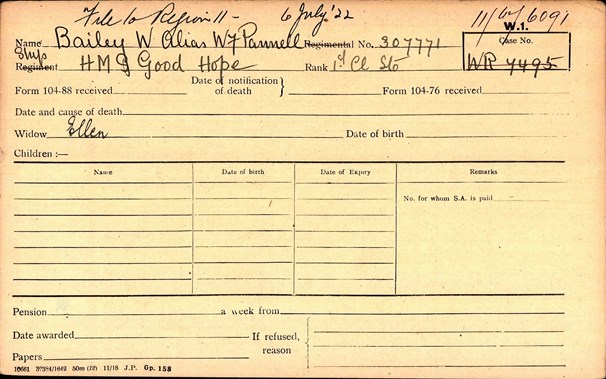 File to Region 11 - 6 July '22
11/W/6091
W.1.
Name Bailey W Alias W J Pannell Regimental No. 307771
Case No.
WR 7495
Ships
Regiment HMS Good Hope Rank 1st Cl Sto
Form 104-88 received Date of notification of death } Form 104-76 received
Date and cause of death
Widow Ellen Date of birth
Children :—
Name Date of birth Date of Expiry Remarks
No. for whom S.A. is paid
Pension a week from
Date awarded If refused, reason {
Papers
10661 37384/1642 50m (12) 11/18 J.P. Gp. 158